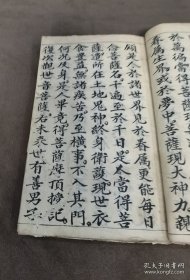 滿於萬遍當得菩
眷屬生界或於夢中菩薩現大神力親
領是人於諸世界見於眷屬更能每日
念菩薩名千遍至於千日是人當得菩
薩遣所在土地鬼神終身衛護現世衣
食豐益無諸疾苦乃至橫事不入其門
何況及身是人畢竟得菩薩摩頂授記
復次觀世音菩薩若未來世有善男子